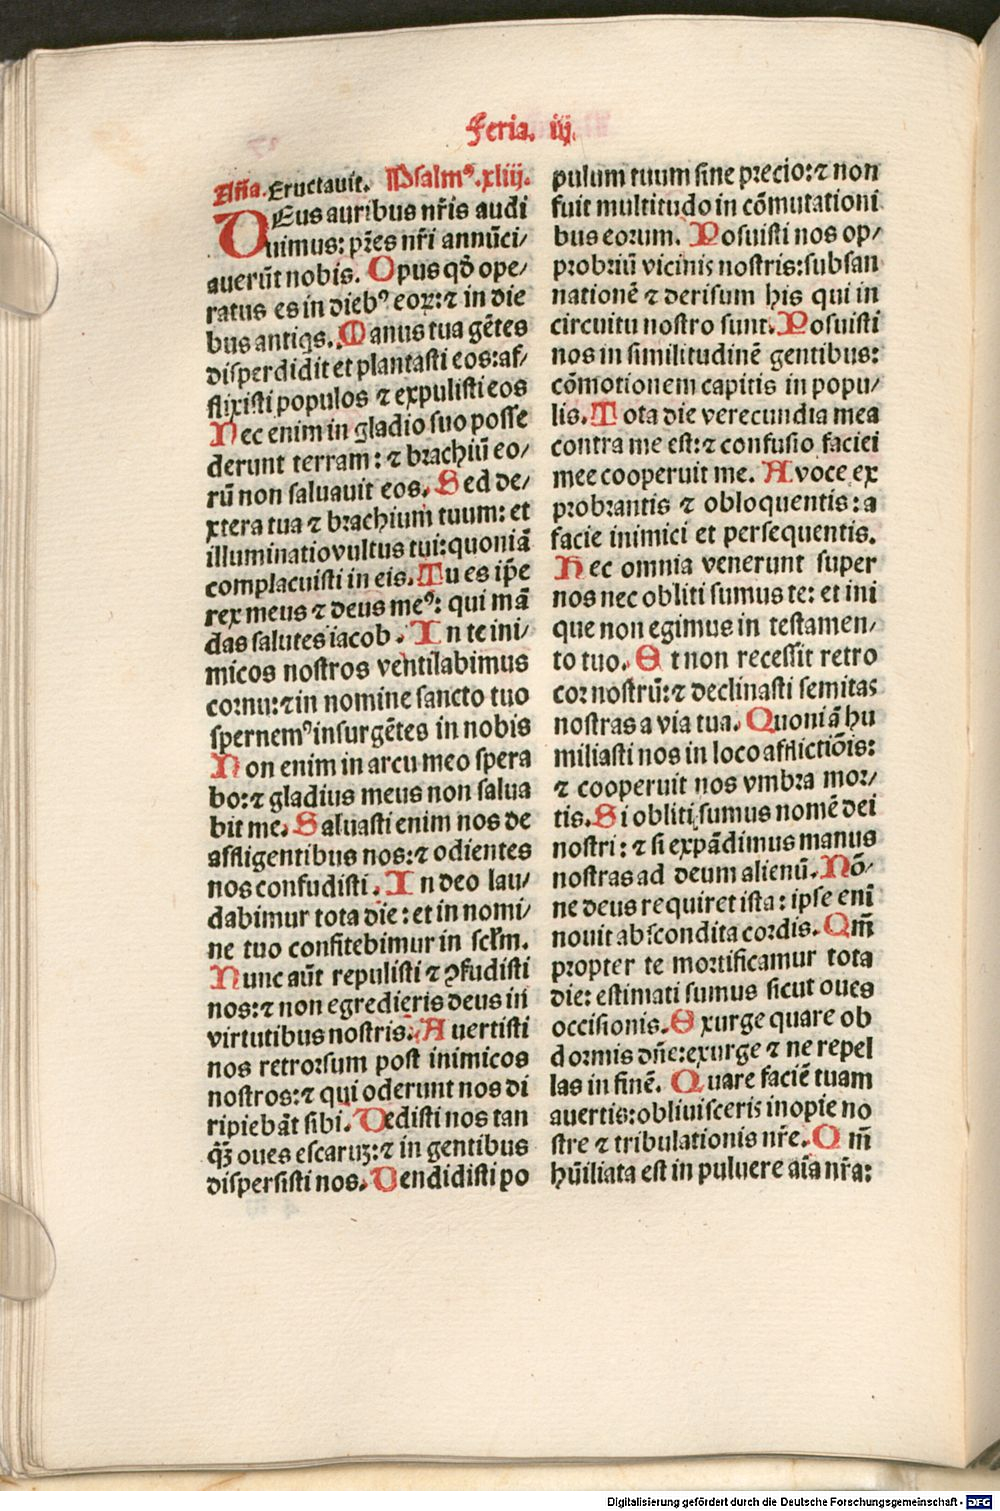 Feria. iij.
Añа. Eructauit. Psalmꝰ. xliij.
DEus auribus nr̃is audi
uimus: pr̃es nr̃i annũci/
auerũt nobis. Opus qđ ope/
ratus es in diebꝰ eoꝝ: ⁊ in die
bus antiqs. Manus tua gẽtes
disperdidit et plantasti eos: af/
flixisti populos ⁊ expulisti eos
Nec enim in gladio suo posse
derunt terram: ⁊ brachiũ eo/
rũ non saluauit eos. Sed de/
xtera tua ⁊ brachium tuum: et
illuminatio vultus tui: quoniã
complacuisti in eis. Tu es ip̃e
rex meus ⁊ deus meꝰ: qui mã
das salutes iacob. In te ini/
micos nostros ventilabimus
cornu: ⁊ in nomine sancto tuo
spernemꝰ insurgẽtes in nobis
Non enim in arcu meo spera
bo: ⁊ gladius meus non salua
bit me. Saluasti enim nos de
affligentibus nos: ⁊ odientes
nos confudisti. In deo lau/
dabimur tota die: et in nomi/
ne tuo confitebimur in scłm.
Nunc aũt repulisti ⁊ ꝯfudisti
nos: ⁊ non egredieris deus in
virtutibus nostris. Auertisti
nos retrorsum post inimicos
nostros: ⁊ qui oderunt nos di
ripiebãt sibi. Dedisti nos tan
qȝ oues escaruȝ: ⁊ in gentibus
dispersisti nos. Vendidisti po
pulum tuum sine precio: ⁊ non
fuit multitudo in cõmutationi
bus eorum. Posuisti nos op/
probriũ vicinis nostris: subsan
nationẽ ⁊ derisum his qui in
circuitu nostro sunt. Posuisti
nos in similitudinẽ gentibus:
cõmotionem capitis in popu/
lis. Tota die verecundia mea
contra me est: ⁊ confusio faciei
mee cooperuit me. A voce ex
probrantis ⁊ obloquentis: a
facie inimici et persequentis.
Hec omnia venerunt super
nos nec obliti sumus te: et ini
que non egimus in testamen/
to tuo. Et non recessit retro
cor nostrũ: ⁊ declinasti semitas
nostras a via tua. Quoniã hu
miliasti nos in loco afflictiõis:
⁊ cooperuit nos vmbra mor/
tis. Si obliti sumus nomẽ dei
nostri: ⁊ si expãdimus manus
nostras ad deum alienũ. Nõ/
ne deus requiret ista: ipse enĩ
nouit abscondita cordis. Qm̃
propter te mortificamur tota
die: estimati sumus sicut oues
occisionis. Exurge quare ob
dormis dñe: exurge ⁊ ne repel
las in finẽ. Quare faciẽ tuam
auertis: obliuisceris inopie no
stre ⁊ tribulationis nr̃e. Qm̃
hũiliata est in puluere aĩa nr̃a:
Digitalisierung gefördert durch die Deutsche Forschungsgemeinschaft - DFG